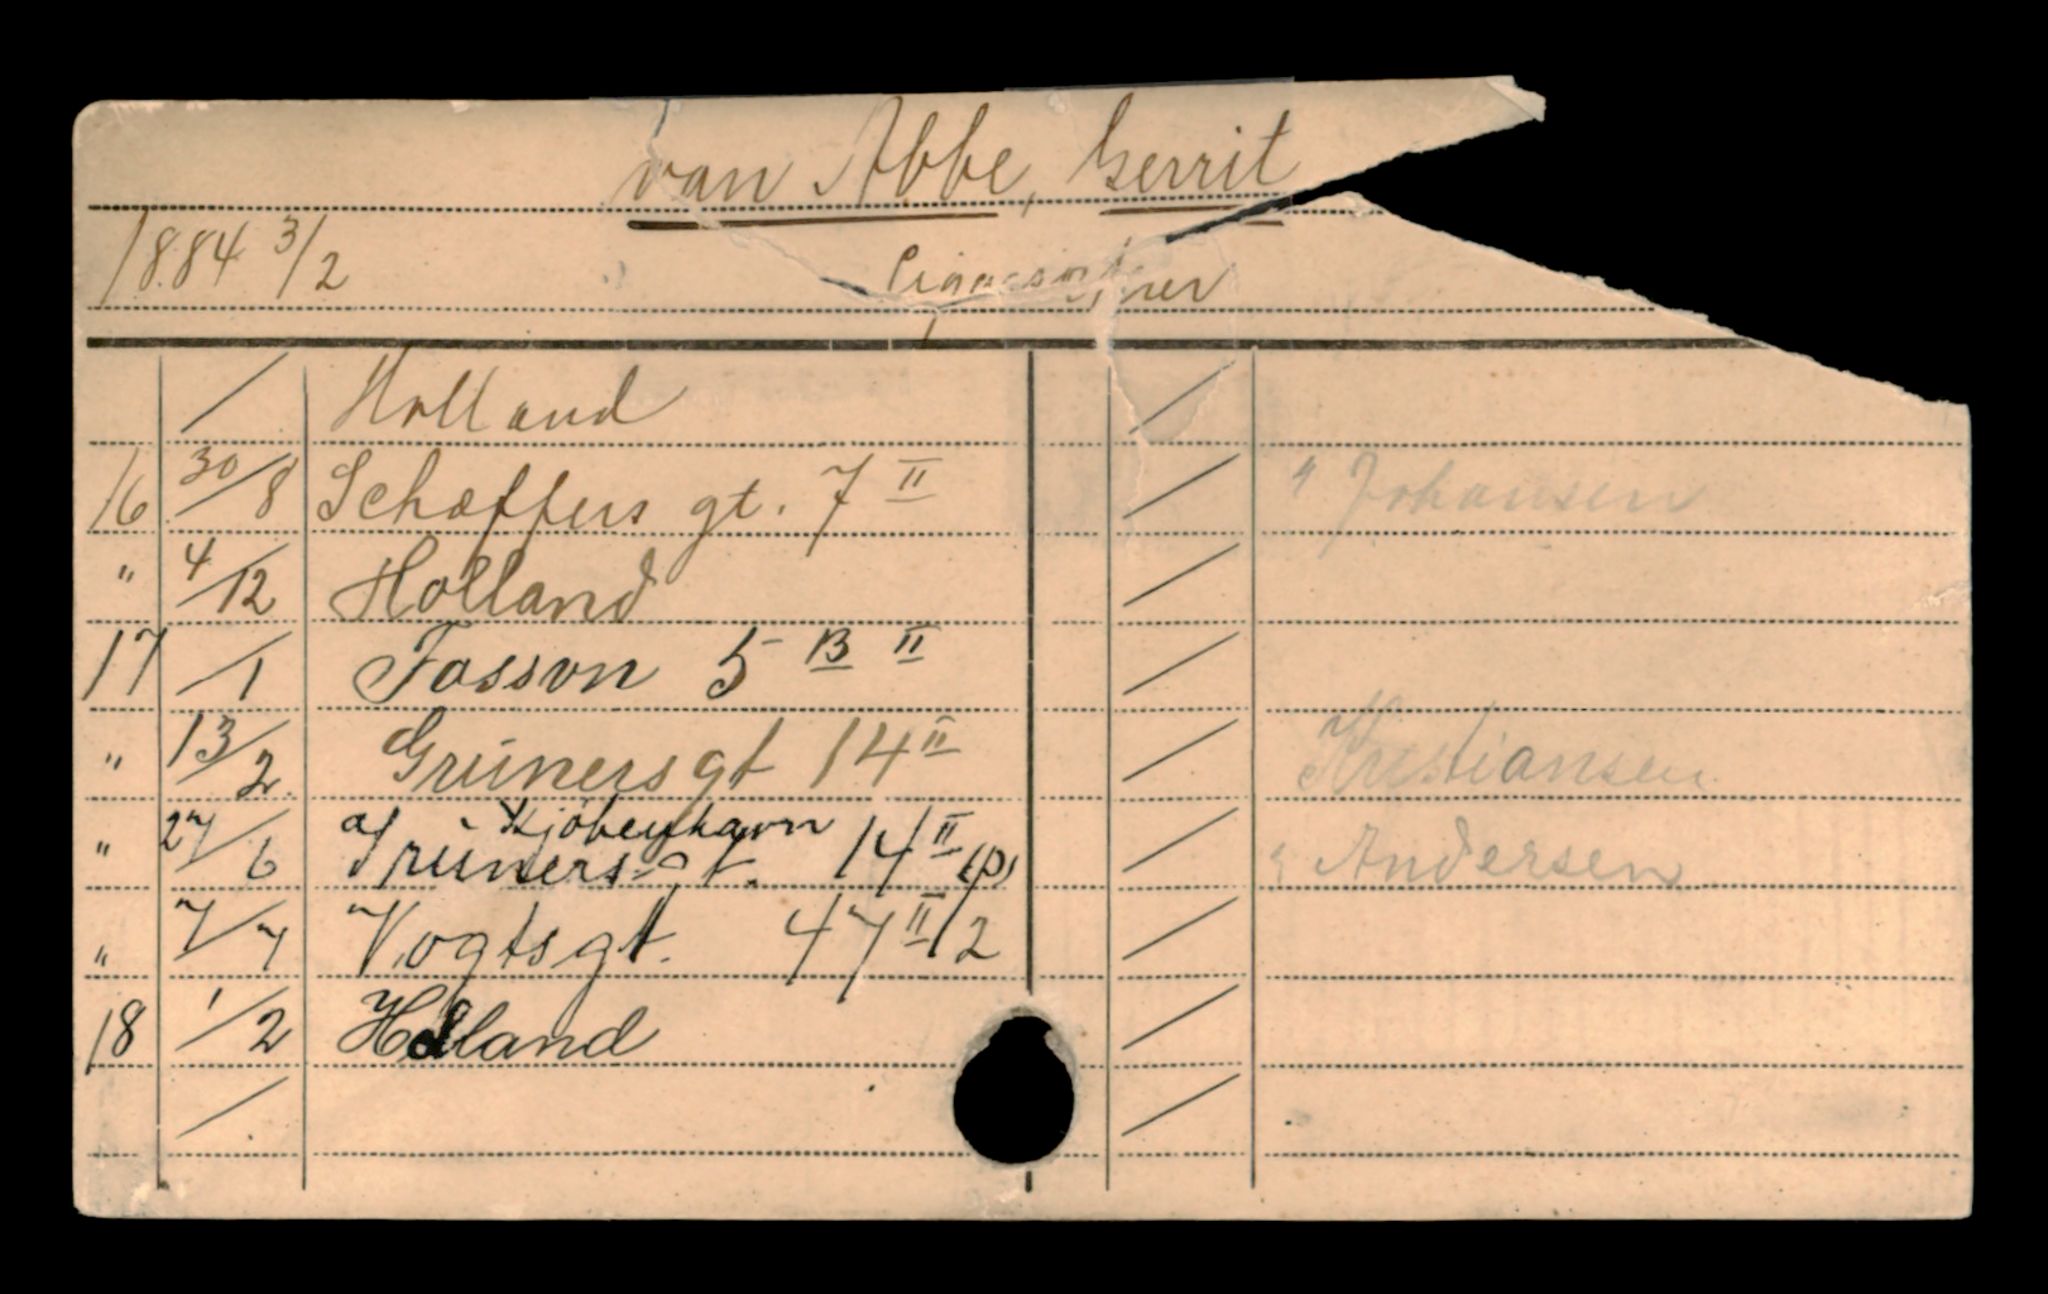 van Abbe, Gerrit
1884 3/2
/ Holland /
16 30/8 Schæffers gt. 7 II / " Johansen
" 4/12 Holland /
17 /1 Fossvn 5 B II /
" 13/2 Grünersgt 14 II / Kristiansen
af i Kjøbenhavn
" 27/6 Grüners gt. 14 II (p) / " Andersen
" 7/7 Vogtsgt. 47 II/2 /
18 1/2 Holland /
/ /